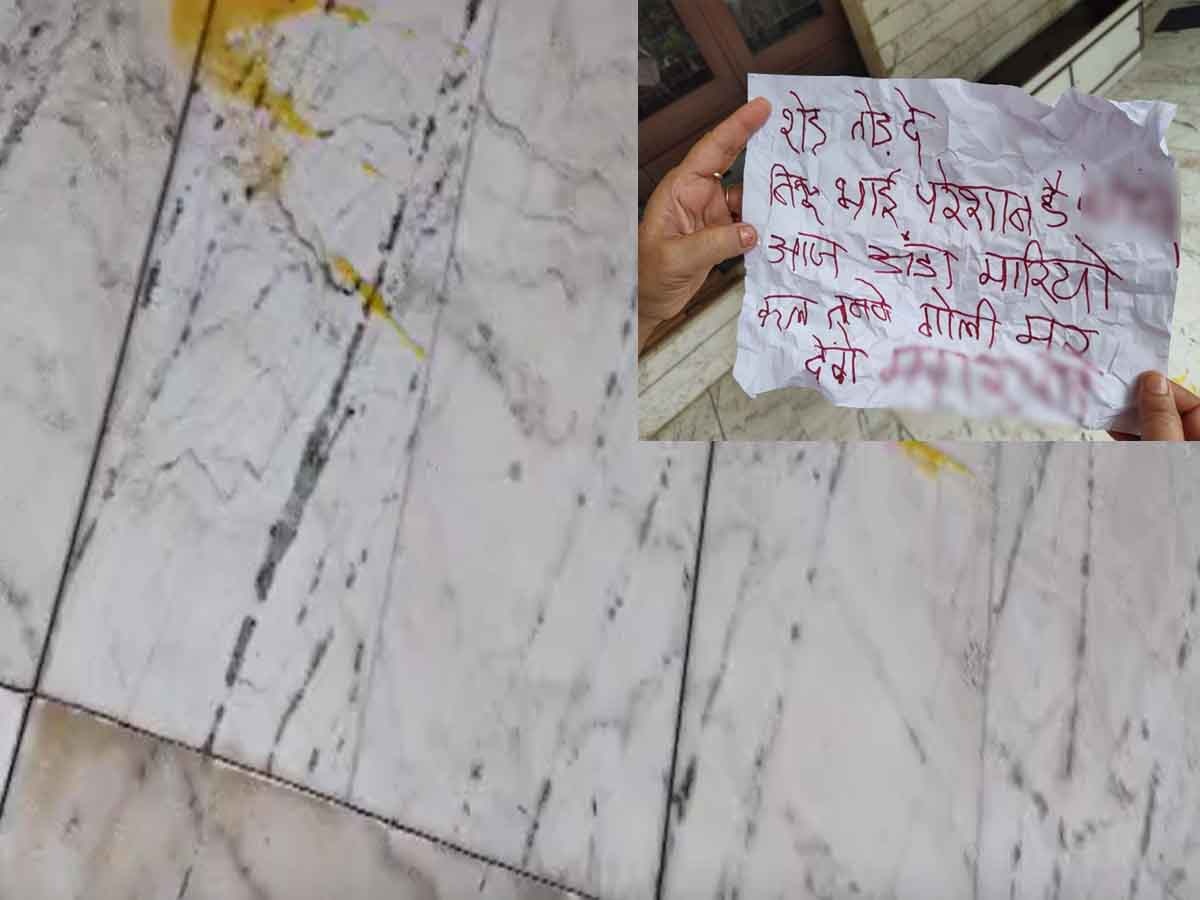 शेड़ तोड़ दे
भाई परेशान है
आज अंडा मारियो
कल तुमके गोली मार
देंगे